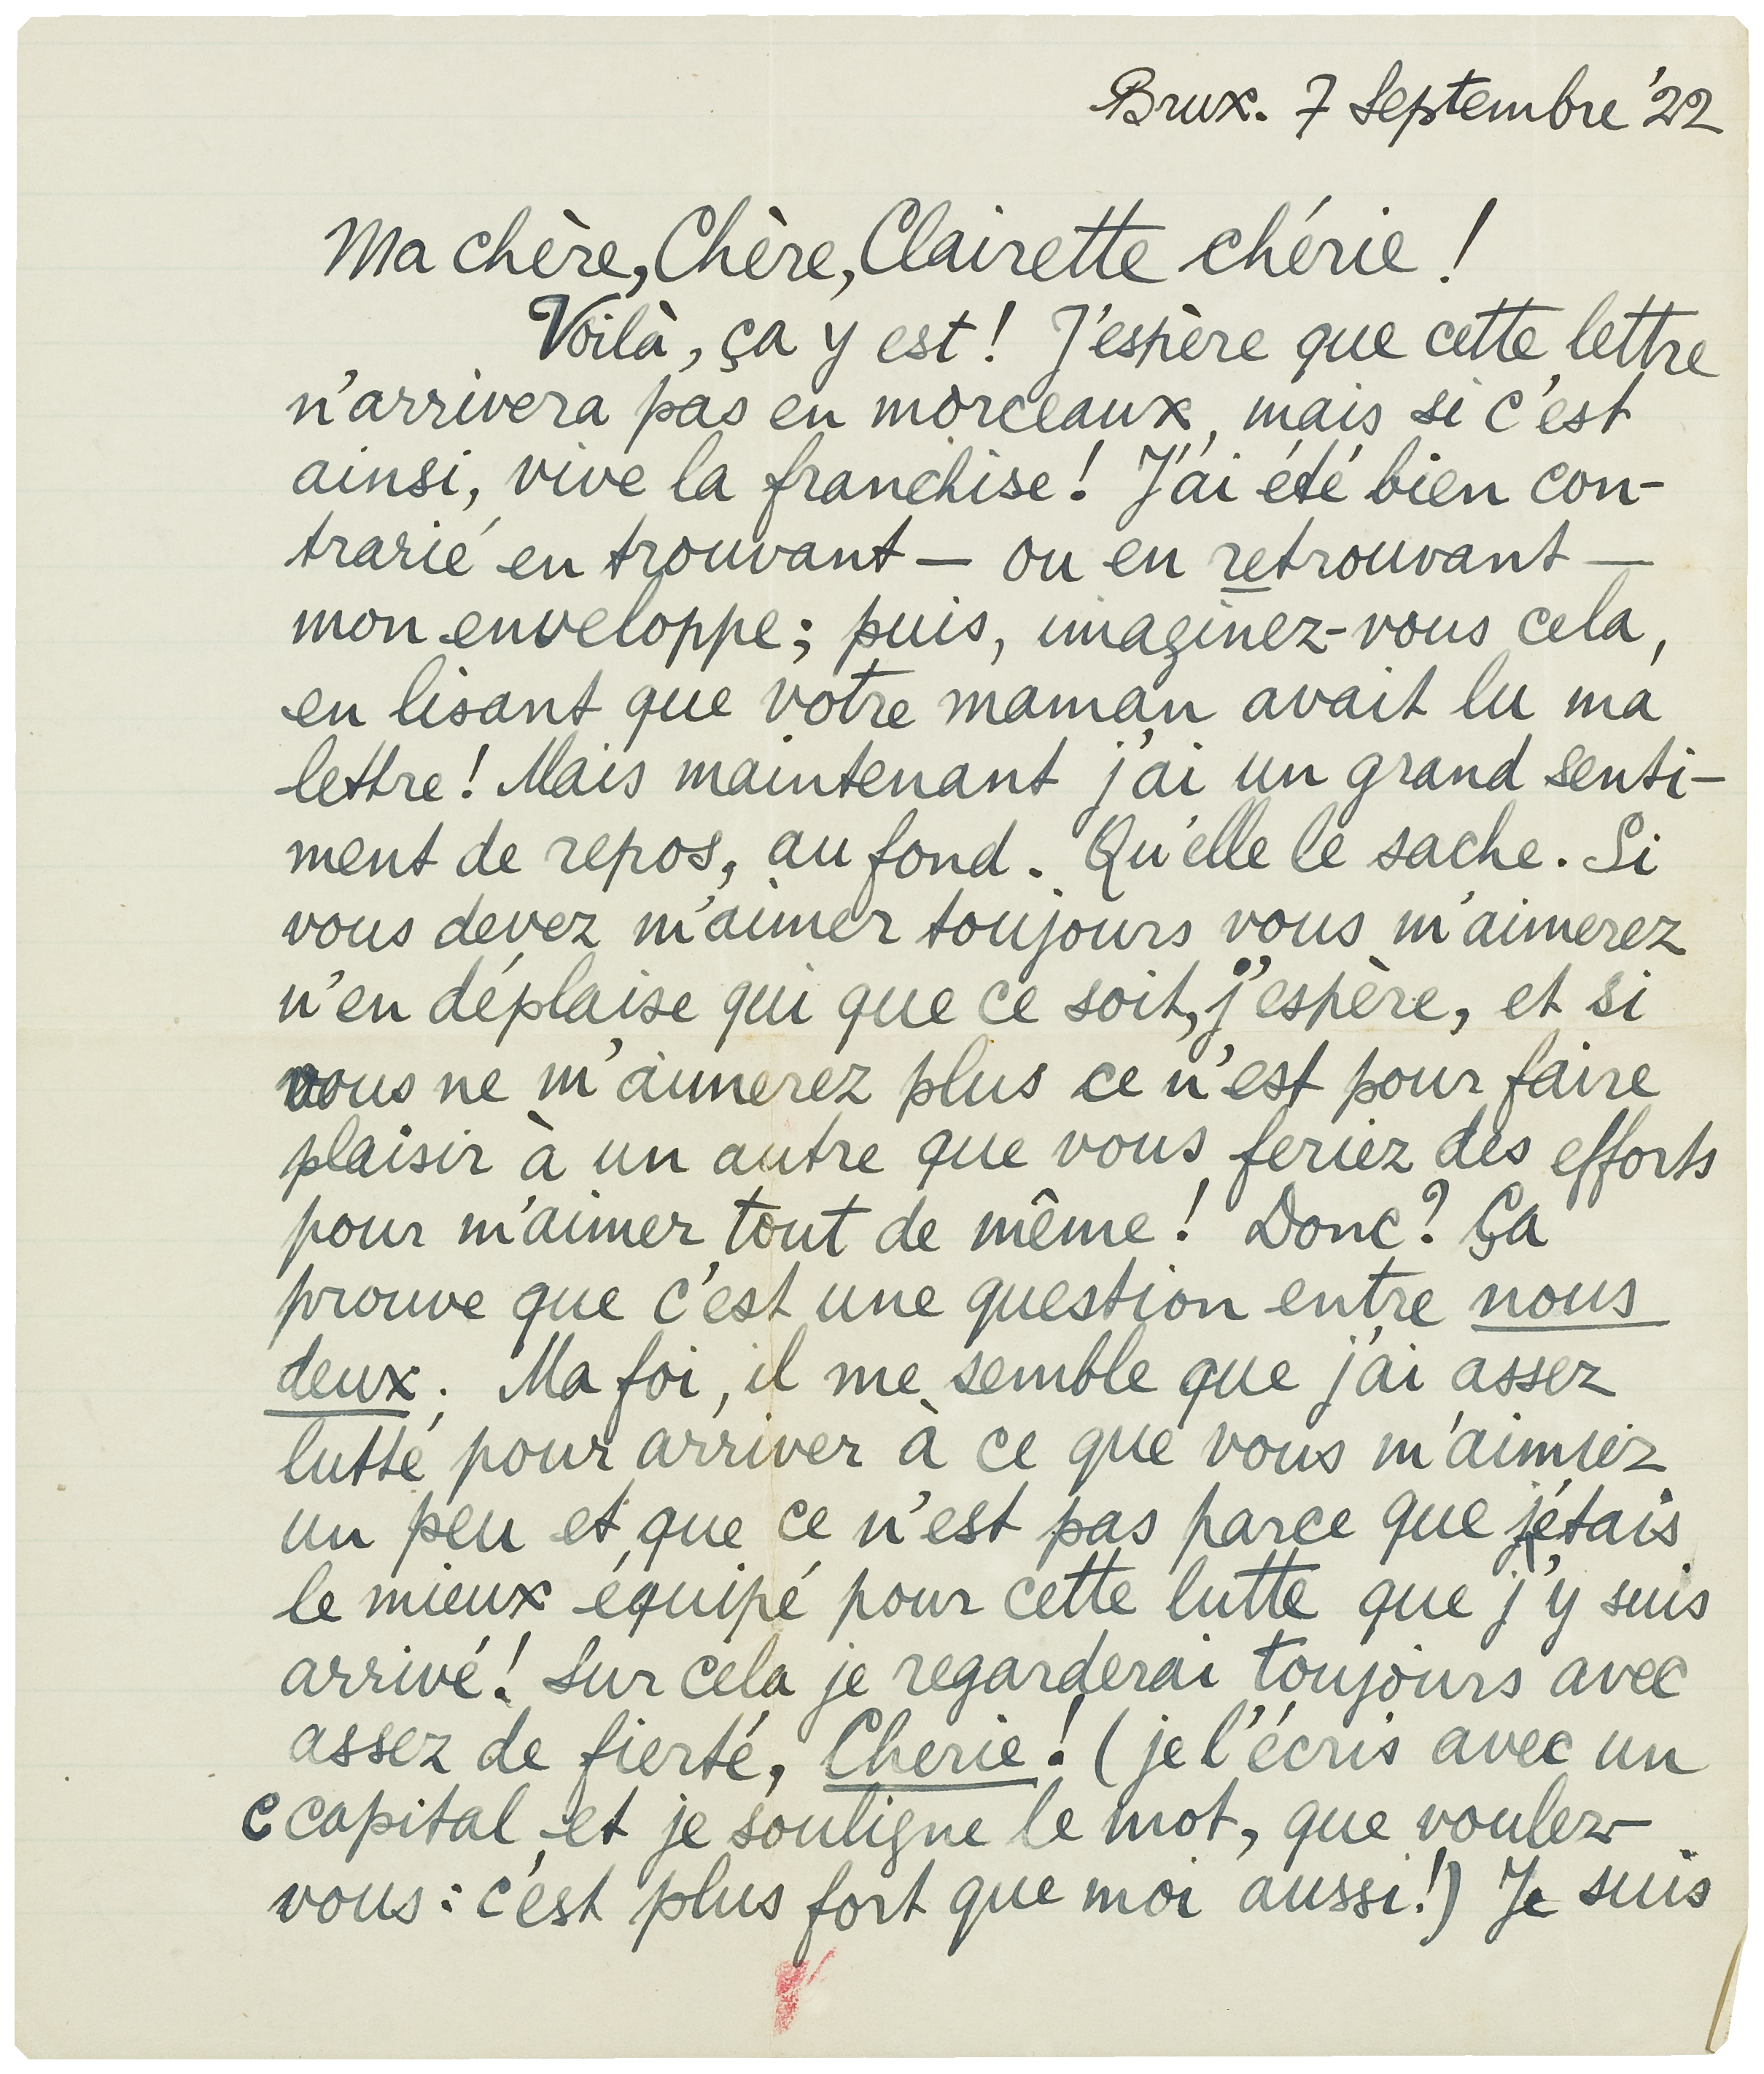 Brux. 7 Septembre '22
Ma chère, Chère, Clairette chérie !
Voilà, ça y est ! J'espère que cette lettre
n'arrivera pas en morceaux, mais si c'est
ainsi, vive la franchise ! J'ai été bien con-
trarié en trouvant — ou en retrouvant —
mon enveloppe ; puis, imaginez-vous cela,
en lisant que votre maman avait lu ma
lettre ! Mais maintenant j'ai un grand senti-
ment de repos, au fond. Qu'elle le sache. Si
vous devez m'aimer toujours vous m'aimerez
n'en déplaise qui que ce soit, j'espère, et si
vous ne m'aimerez plus ce n'est pour faire
plaisir à un autre que vous feriez des efforts
pour m'aimer tout de même ! Donc ? Ça
prouve que c'est une question entre nous
deux. Ma foi, il me semble que j'ai assez
lutté pour arriver à ce que vous m'aimiez
un peu et que ce n'est pas parce que j'étais
le mieux équipé pour cette lutte que j'y suis
arrivé ! Sur cela je regarderai toujours avec
assez de fierté, Cherie ! (je l'écris avec un
C capital, et je souligne le mot, que voulez-
vous : c'est plus fort que moi aussi !) Je suis